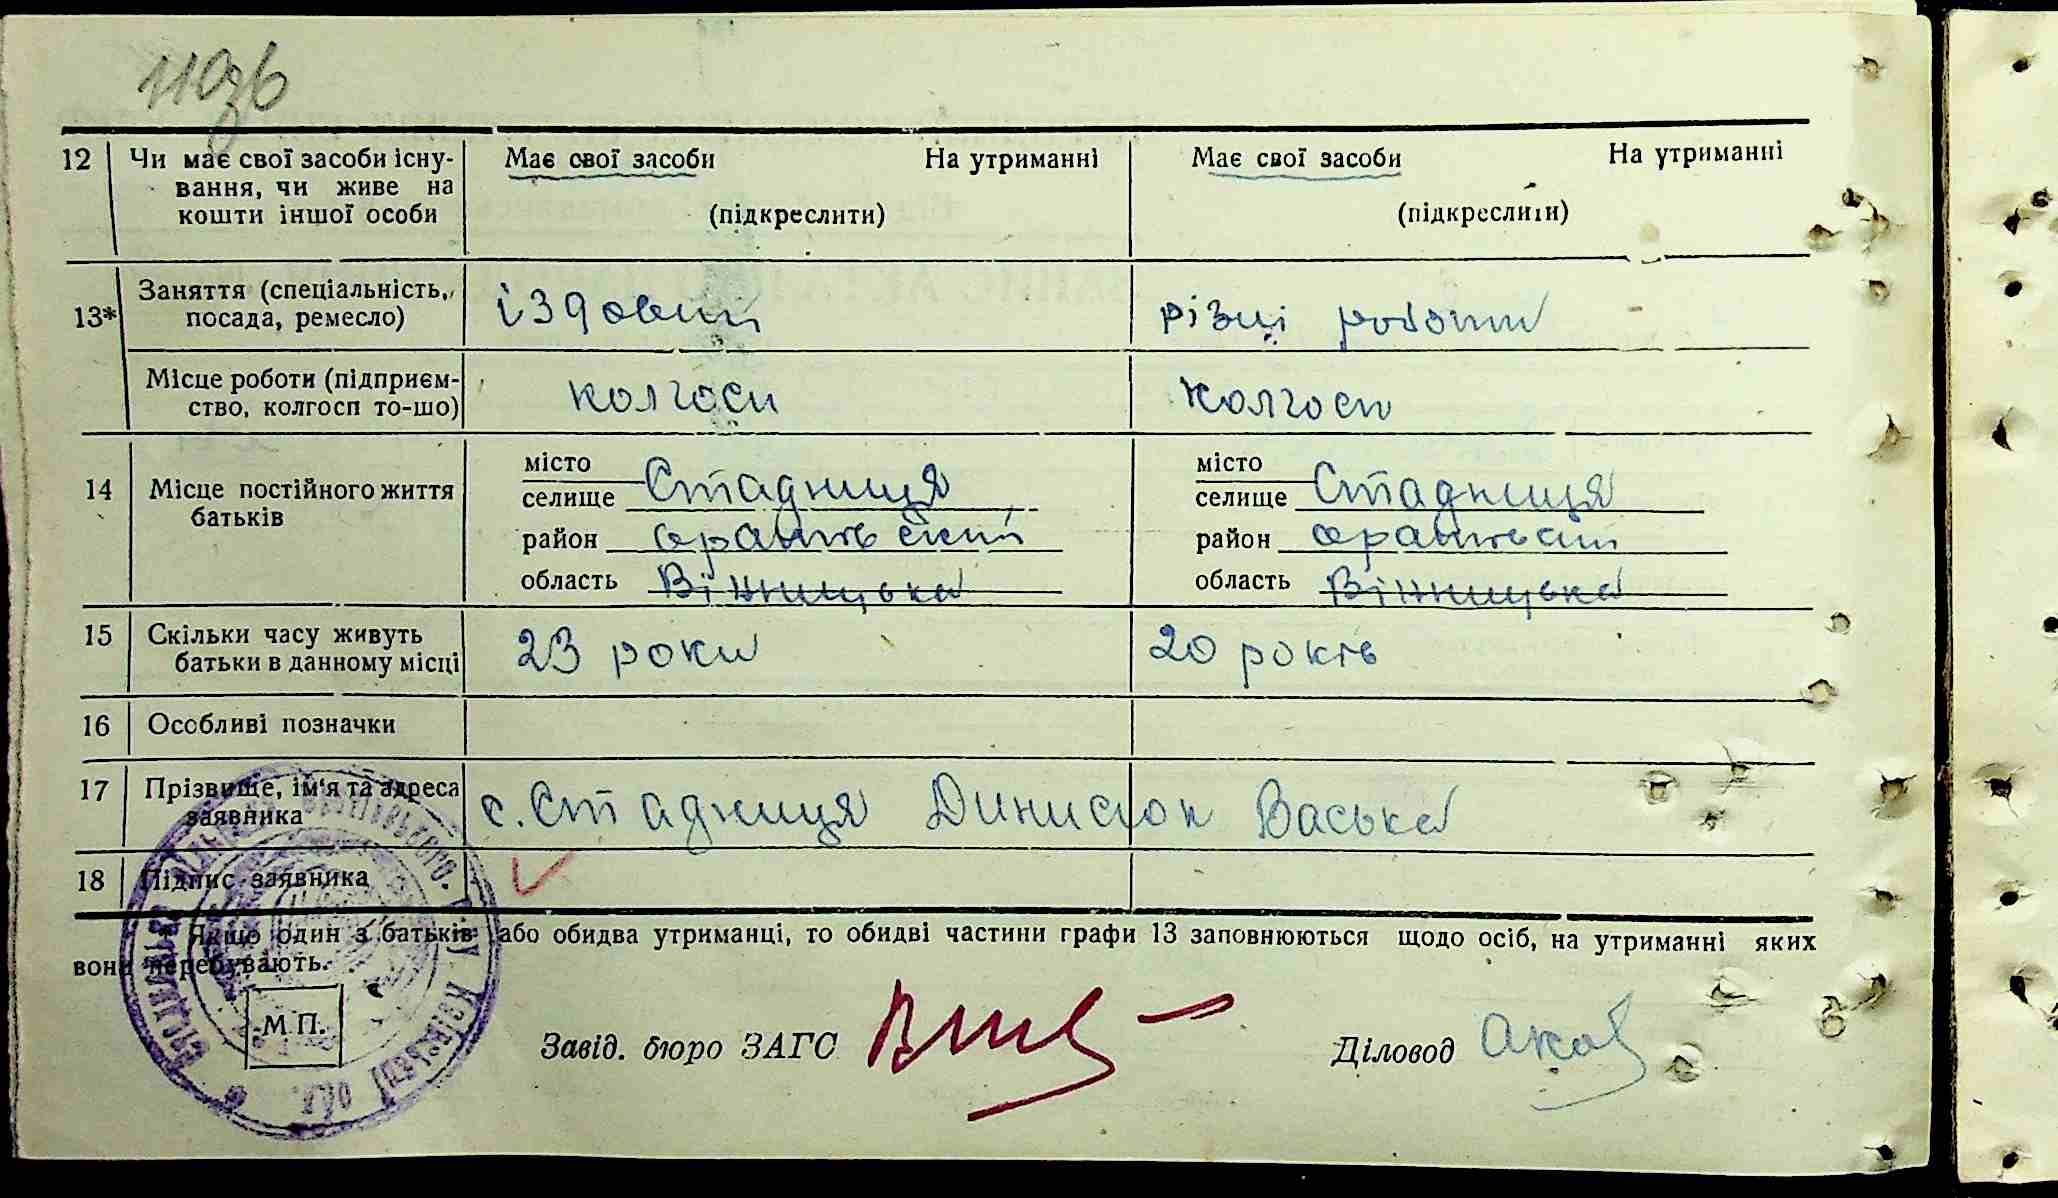 110зв
12 Чи має свої засоби існу- Має свої засоби На утриманні Має свої засоби На утриманні
вання, чи живе на
кошти іншої особи (підкреслити) (підкреслити)
13* Заняття (спеціальність, іздовий різні роботи
посада, ремесло)
Місце роботи (підприєм- колгосп колгосп
ство, колгосп то-що)
14 Місце постійного життя місто місто
батьків селище Стадниця селище Стадниця
район район
область Вінницька область Вінницька
15 Скільки часу живуть 23 роки 20 років
батьки в данному місці
16 Особливі позначки
17 Прізвище, ім'я та адреса с. Стадниця Динисюк Васька
заявника
18 Підпис заявника
* Якщо один з батьків або обидва утриманці, то обидві частини графи 13 заповнюються щодо осіб, на утриманні яких
вони перебувають.
М.П.
Завід. бюро ЗАГС Діловод